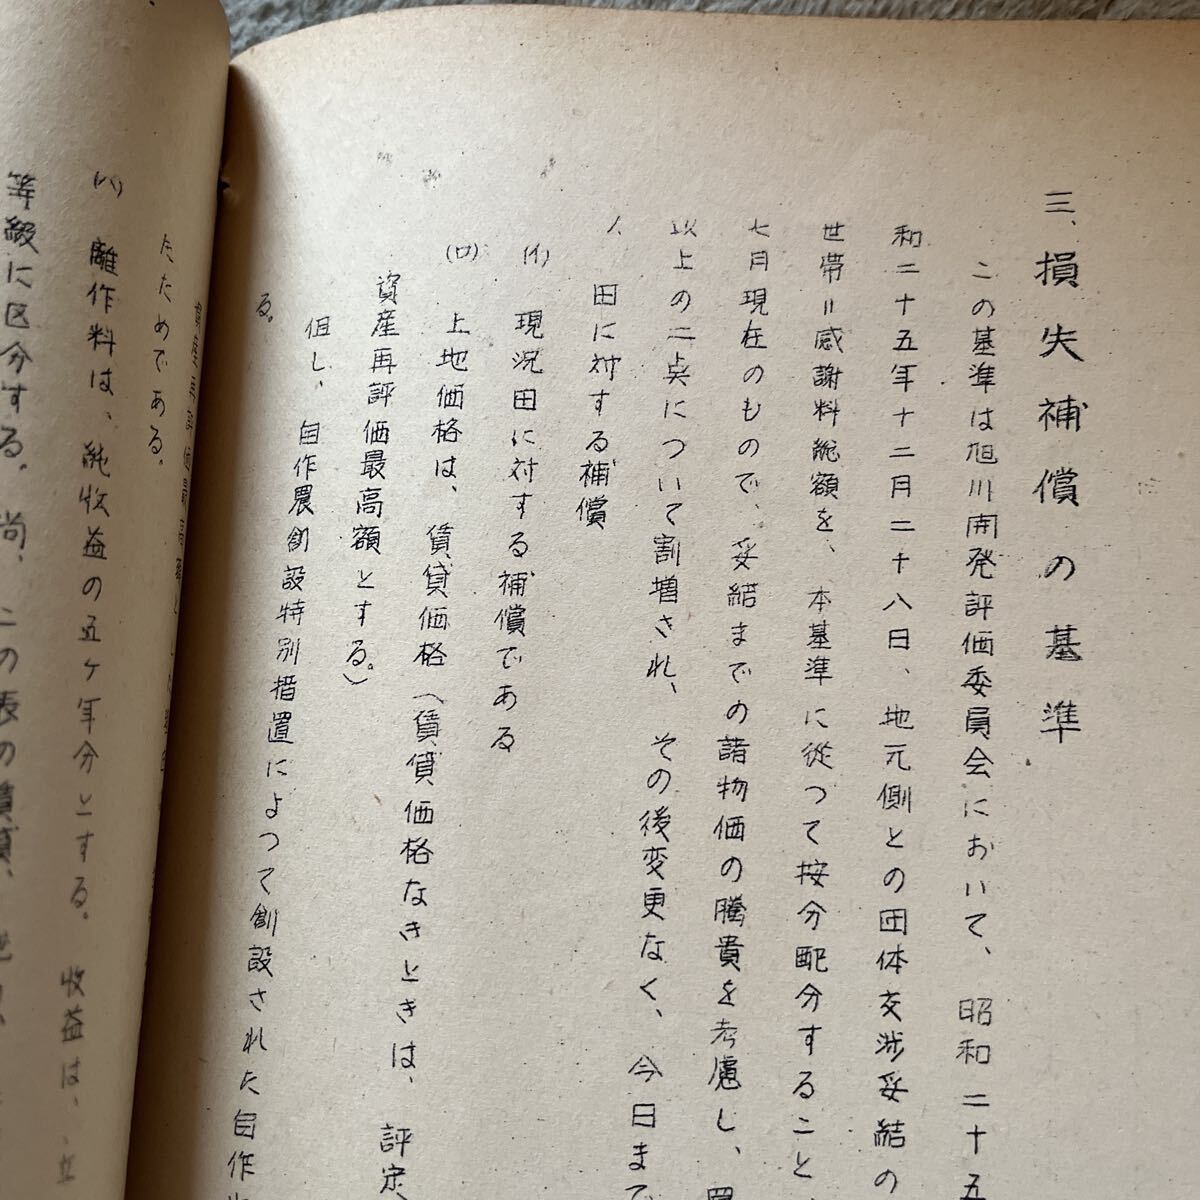 三、損失補償の基準
この基準は旭川開発評価委員会において、昭和二十五
和二十五年十二月二十八日、地元側との団体交渉妥結の
世帯＝感謝料総額を、本基準に従つて按分配分すること、
七月現在のもので、妥結までの諸物価の騰貴を考慮し、買
以上の二点について割増され、その後変更なく、今日まで
田に対する補償
(イ) 現況田に対する補償である
(ロ) 土地価格は、賃貸価格(賃貸価格なきときは、評定、
資産再評価最高額とする。)
但し、自作農創設特別措置によつて創設された自作
る。
たためである。
(ハ) 離作料は、純収益の五ケ年分とする。収益は、
等級に区分する。尚、この表の賃貸